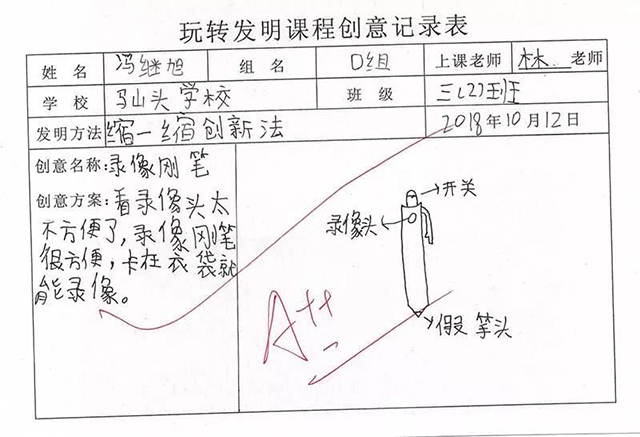 玩转发明课程创意记录表
姓 名 冯继旭 组 名 D组 上课老师 林 老师
学 校 马山头学校 班 级 三(2)班
发明方法 缩一缩创新法 2018年10月12日
创意名称:录像刚笔
创意方案:看录像头太
不方便了,录像刚笔
很方便,卡在衣袋就
能录像。
开关
录像头
假笔头
A++